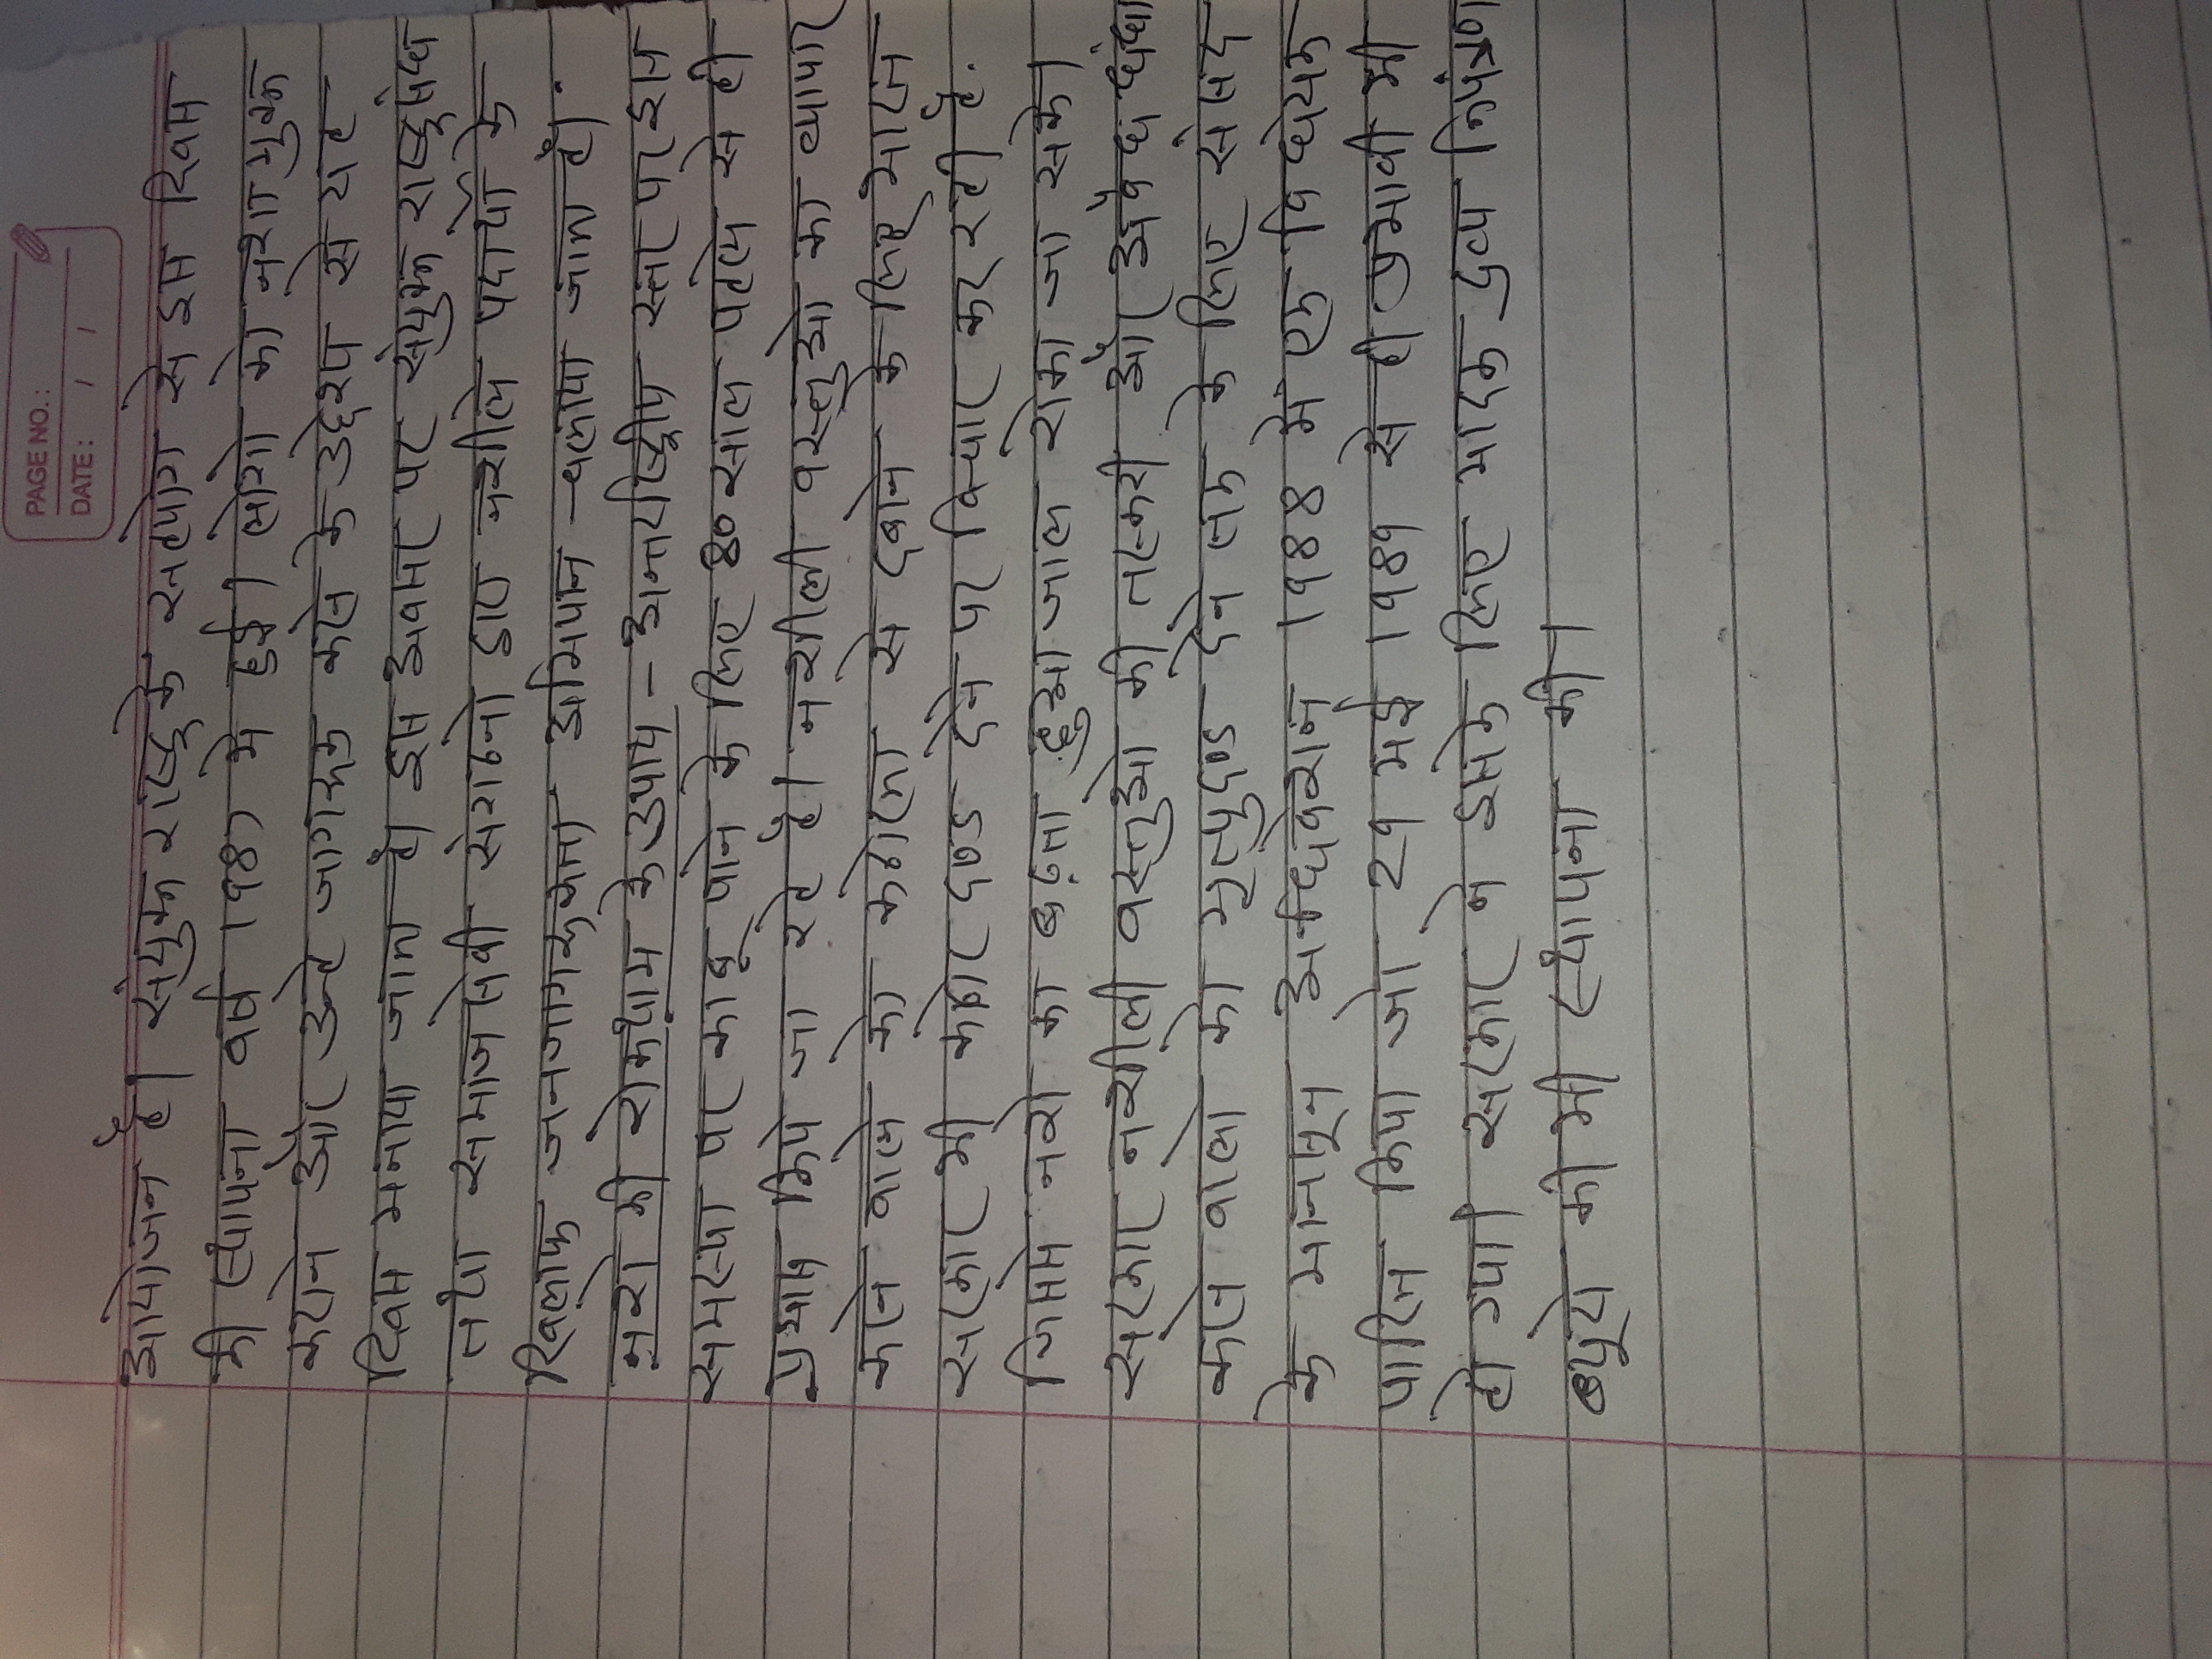 PAGE NO.:
DATE: / /
आयोजन है। संयुक्त राष्ट्र के सहयोग से इस दिवस
की स्थापना वर्ष 1987 में हुई। लोगो को नशा मुक्त
कराने और उन्हे जागरूक करने के उद्देश्य से यह
दिवस मनाया जाता है। इस अवसर पर संयुक्त राष्ट्रसंघ
तथा समाजसेवी संगठनो द्वारा नशीले पदार्थो के
खिलाफ जनजागरूकता अभियान चलाया जाता है।
नशे की रोकथाम के उपाय - अन्तर्राष्ट्रीय स्तर पर इस
समस्या पर काबू पाने के लिए 80 साल पहले से ही
प्रयास किये जा रहे है। नशीली वस्तुओ का व्यापार
करने वाले को कठोरता से दबाने के लिए भारत
सरकार भी कठोर दण्ड देने पर विचार कर रही है.
जिससे नशे का बढ़ता हुआ जाल रोका जा सके।
सरकार नशीली वस्तुओ की तस्करी और अवैध धंधा
करने वालो को मृत्युदण्ड देने तक के लिए संसद
के मानसून अधिवेशन 1988 में एक विधेयक
पारित किया जो 29 मई 1989 से ही प्रभावी भी
हो गया। सरकार ने इसके लिए मादक द्रव्य नियंत्रण
ब्यूरो की भी स्थापना की।